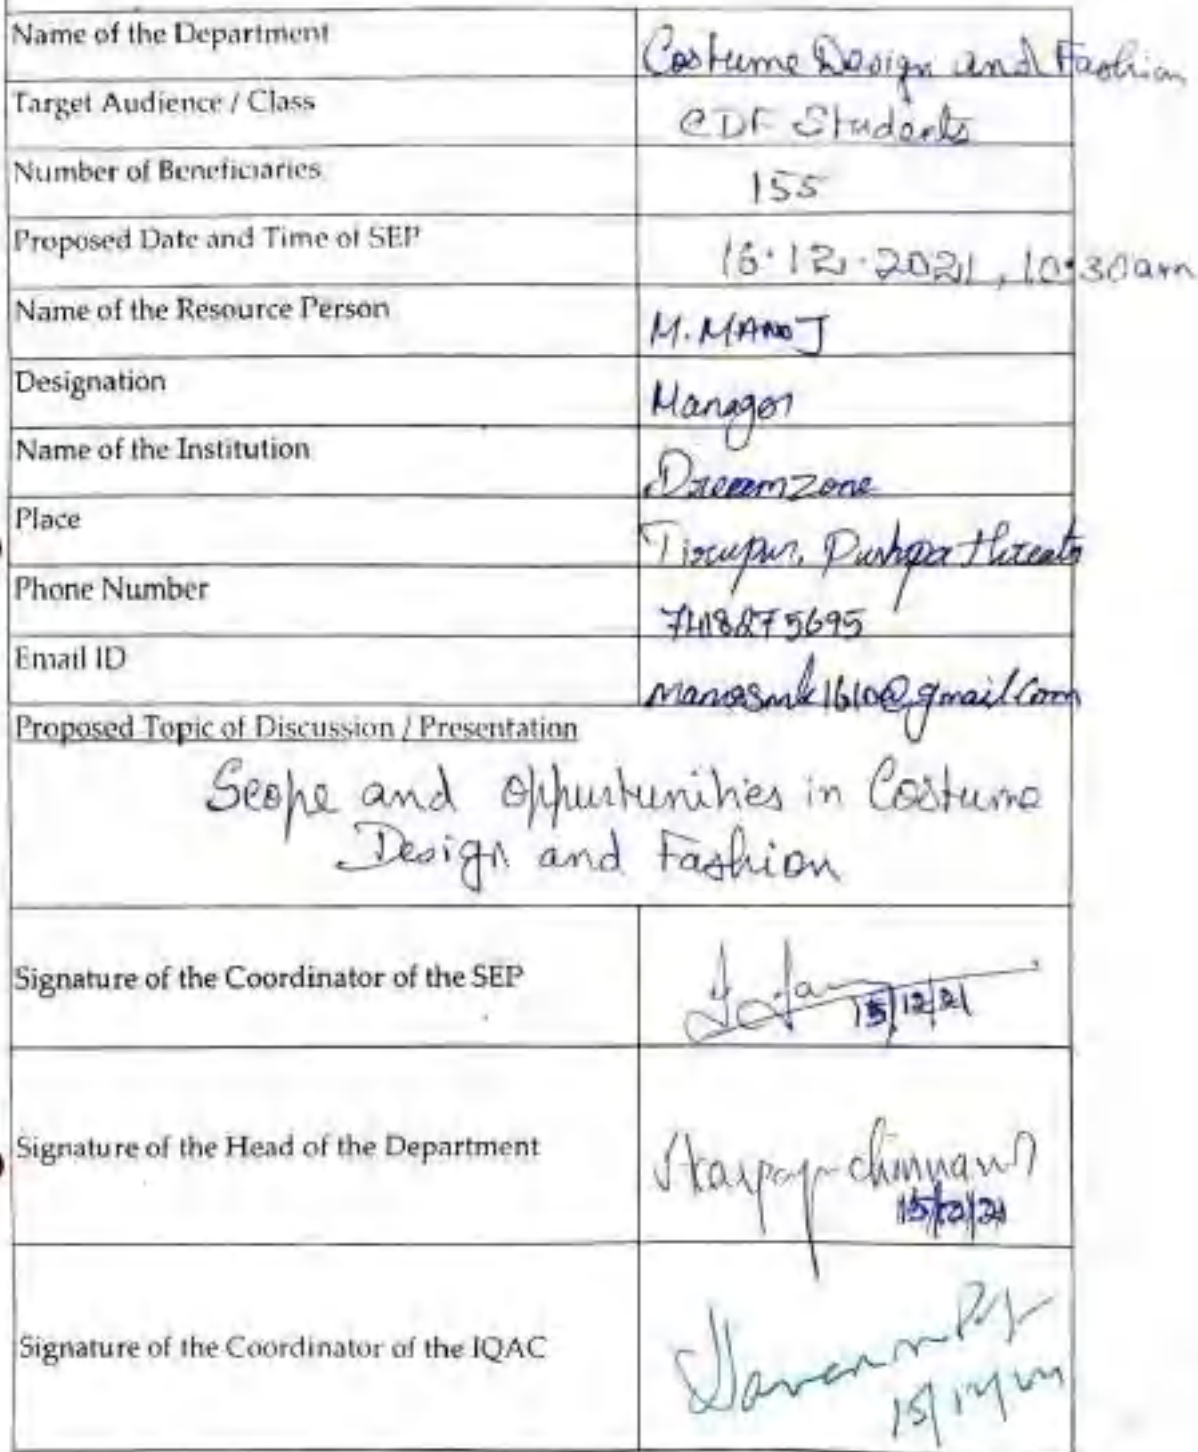 Name of the Department Costume Design and Fashion
Target Audience / Class CDF Students
Number of Beneficiaries 155
Proposed Date and Time of SEP 16.12.2021, 10.30am
Name of the Resource Person M. MANOJ
Designation Manager
Name of the Institution Dreamzone
Place Tirupur, Pushpa
Phone Number
Email ID
Proposed Topic of Discussion / Presentation
Scope and oppurtunities in Costume
Design and Fashion
Signature of the Coordinator of the SEP
15/12/21
Signature of the Head of the Department
15/12/21
Signature of the Coordinator of the IQAC